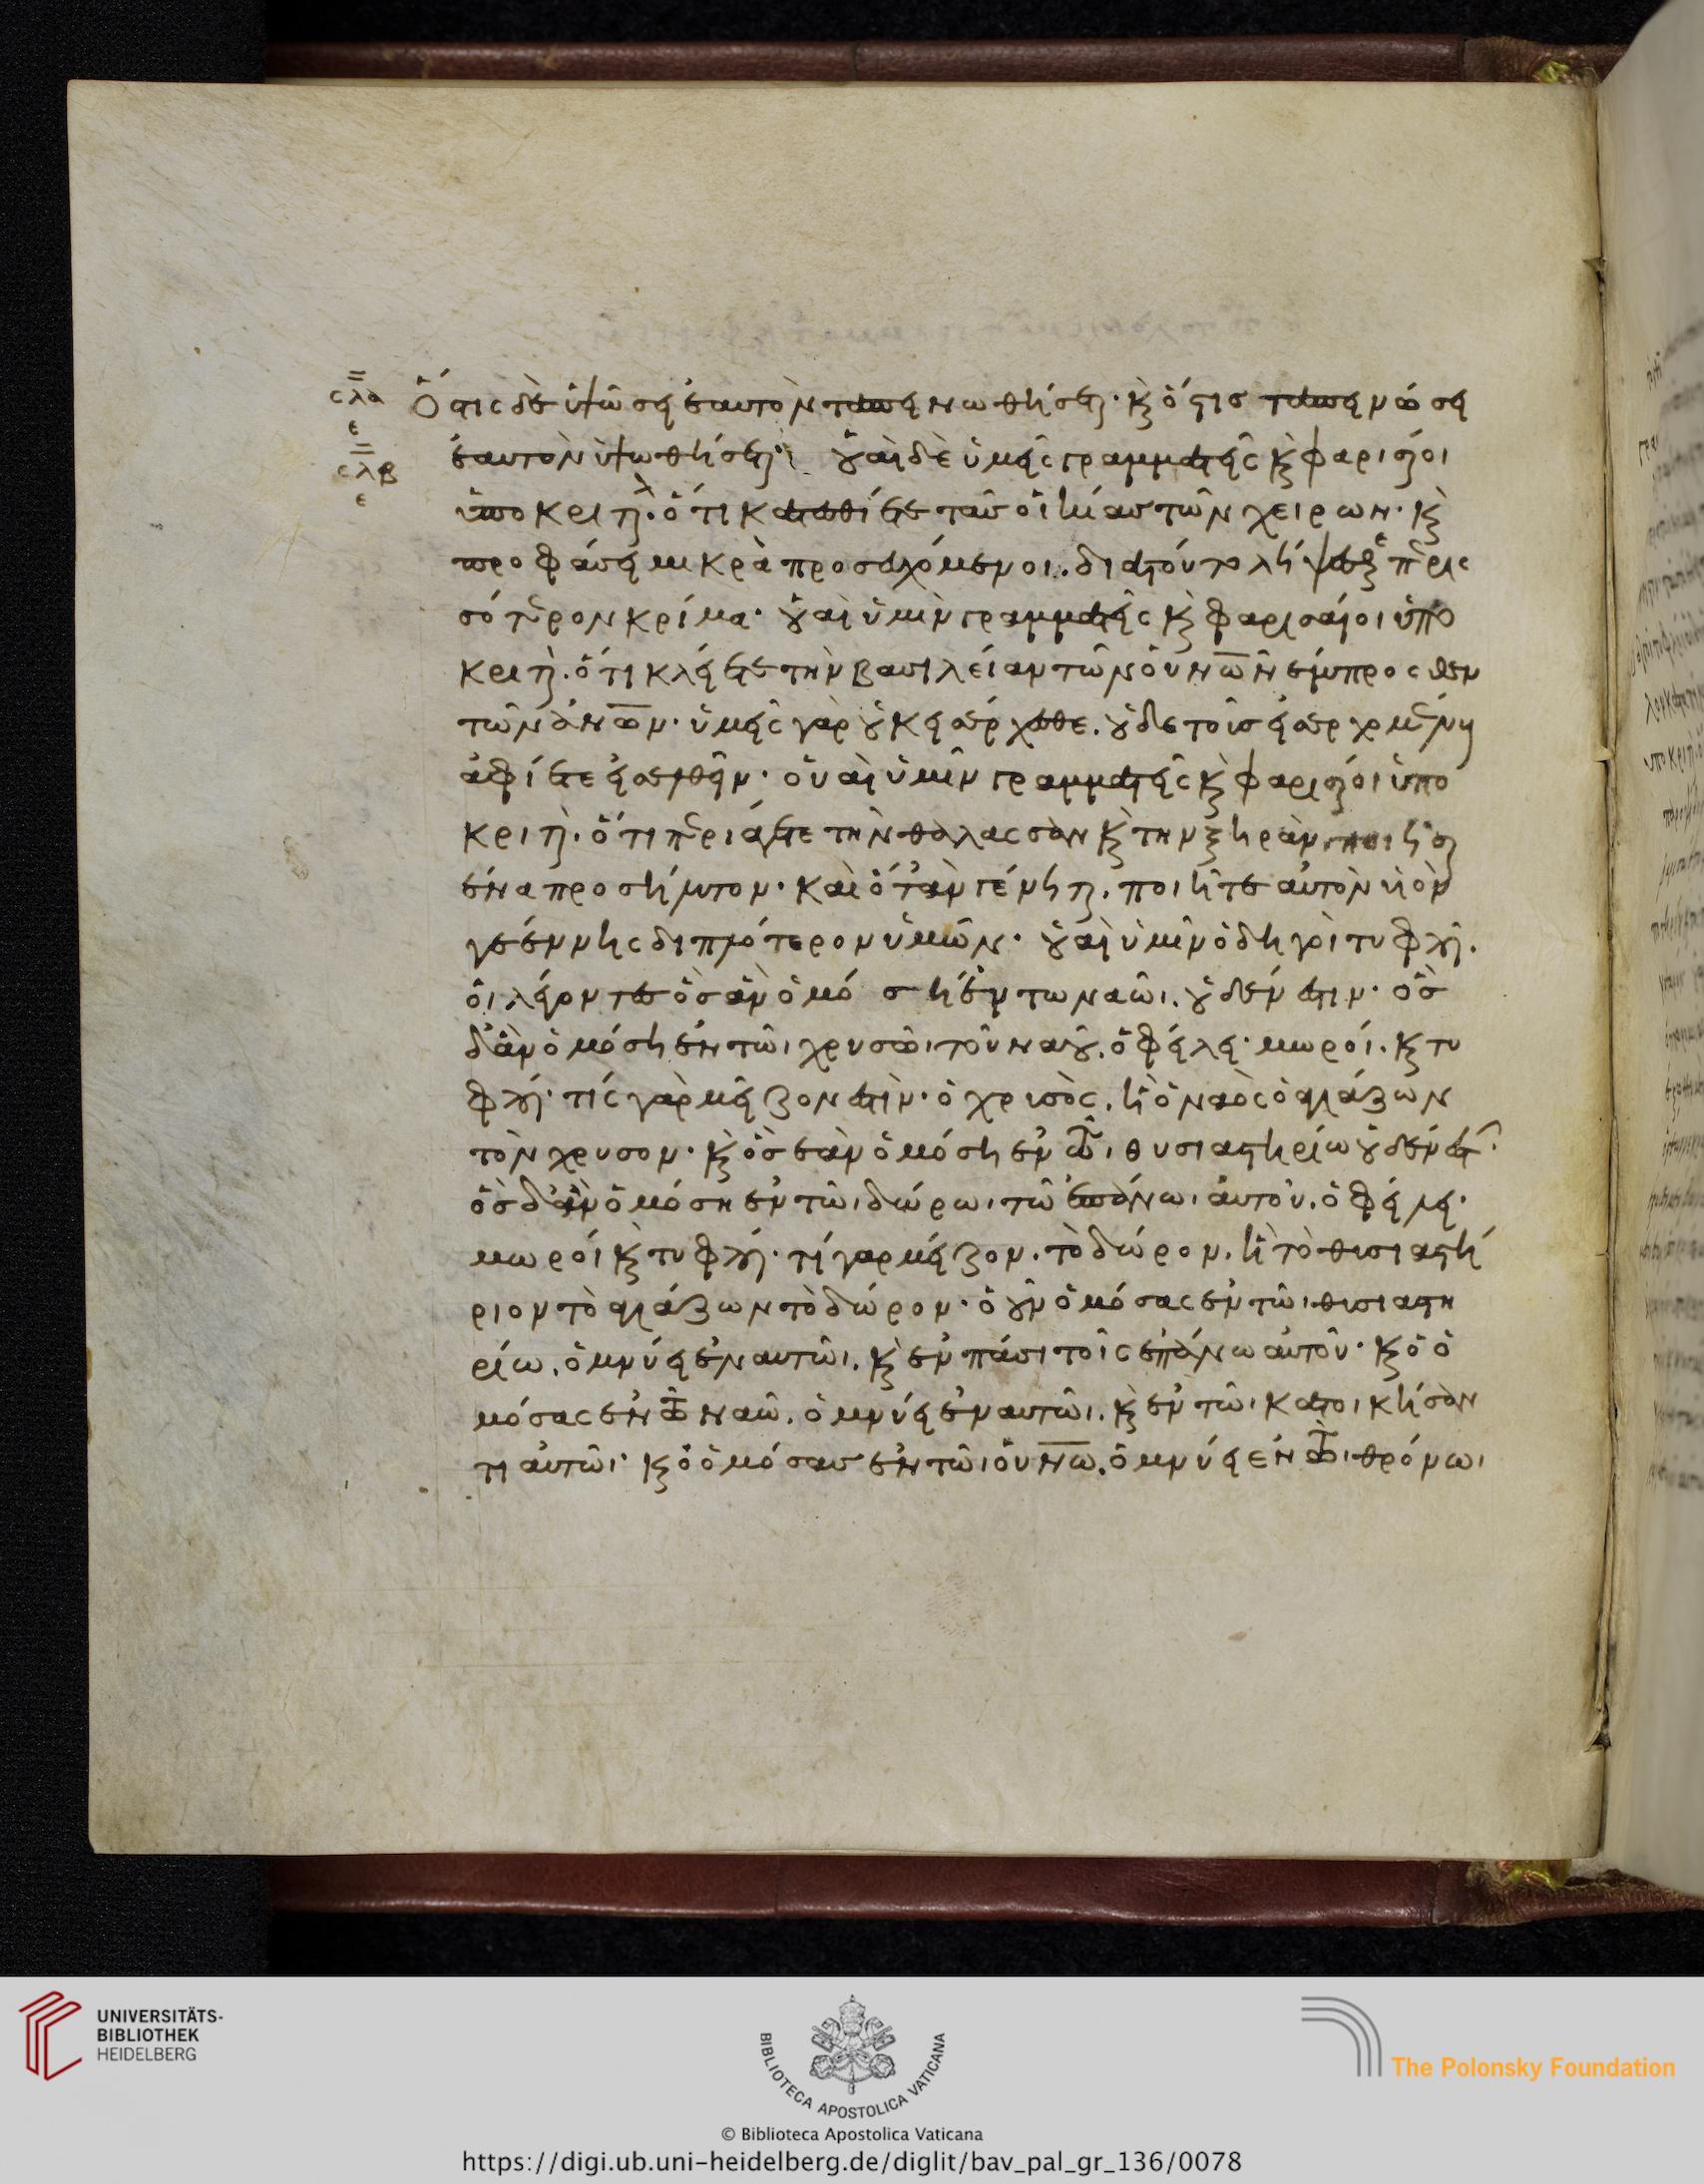 σλα
ε
σλβ
ε
Ὅστις δὲ ὑψώσει ἑαυτὸν ταπεινωθήσεται· κ̀ ὅστις ταπεινώσει
ἑαυτὸν ὑψωθήσεται· οὐαὶ δὲ ὑμεῖς γραμματεῖς κ̀ φαρισαῖοι
ὑποκριταὶ. ὅτι κατεσθίετε τὰσ οἰκίασ τῶν χειρων· κ̀
προφάσει μικρὰ προσευχόμενοι. διατούτο λήψεσθε περισ
σότερον κρίμα· οὐαὶ ὑμῖν γραμματεῖς κ̀ φαρισαίοι ὑπο
κριταὶ. ὅτι κλείετε τὴν βασιλείαν τῶν οὐνῶν ἔμπροςθεν
τῶν ἀνων· ὑμεῖς γὰρ οὐκ εισέρχεσθε. οὐδε τοῖσ εἰσερχομένους
ἀφίετε εἰσελθεῖν· οὐαὶ ὑμῖν γραμματεῖς κ̀ φαρισαίοι ὑπο
κριταὶ. ὅτι περιάγετε τὴν θάλασσαν κ̀ τὴν ξηρὰν ποιῆσαι
ἕνα προσήλυτον· καὶ ὅταν γένηται. ποιῆτε αὐτὸν υἱὸν
γεέννης διπλότερον ὑμῶν· οὐαὶ ὑμῖν ὁδηγοὶ τυφλοὶ.
οἱ λέγοντες ὃσ ἂν ὀμόση ἐν τω ναῶι. οὐδέν ἐστιν· ὃσ
δἂν ὀμόση ἐν τῶι χρυσῶι τοῦ ναοῦ. ὀφείλει· μωροί. κ̀ τυ
φλοί· τίς γὰρ μείζον ἐστὶν· ὁ χρισὸς. ἢ ὁ ναὸς ὁ ἁγιάζων
τὸν χρυσον· κ̀ ὃσ ἐὰν ὀμόση ἐν τῶι θυσιαστηρίω οὐδέν ἐστ·
ὃσ δἂν ὀμόση ἐν τῶι δώρωι τῶ ἐπάνωι ἀυτοῦ. ὀφείλει·
μωροί κ̀ τυφλοί· τί γαρ μείζον. τὸ δώρον. ἢ τὸ θυσιαστή
ριον τὸ ἁγιάζων τὸ δώρον· ὁ οὖν ὀμόσας ἐν τῶι θυσιαστη
ρίω. ὀμνύει ἐν αυτῶι. κ̀ ἐν πάσι τοῖς ἐπάνω αὐτοῦ· κ̀ ὁ ὀ
μόσας ἐν τῶ ναῶ. ὀμνύει ἐν αυτῶι. κ̀ ἐν τῶι κατοικήσαν
τι αὐτῶι· κ̀ ὁ ὀμόσασ ἐν τῶι οὐνω. ὀμνύει ἐν τῶι θρόνωι
UNIVERSITÄTS-
BIBLIOTHEK
HEIDELBERG
BIBLIOTECA APOSTOLICA VATICANA
The Polonsky Foundation
© Biblioteca Apostolica Vaticana
https://digi.ub.uni-heidelberg.de/diglit/bav_pal_gr_136/0078